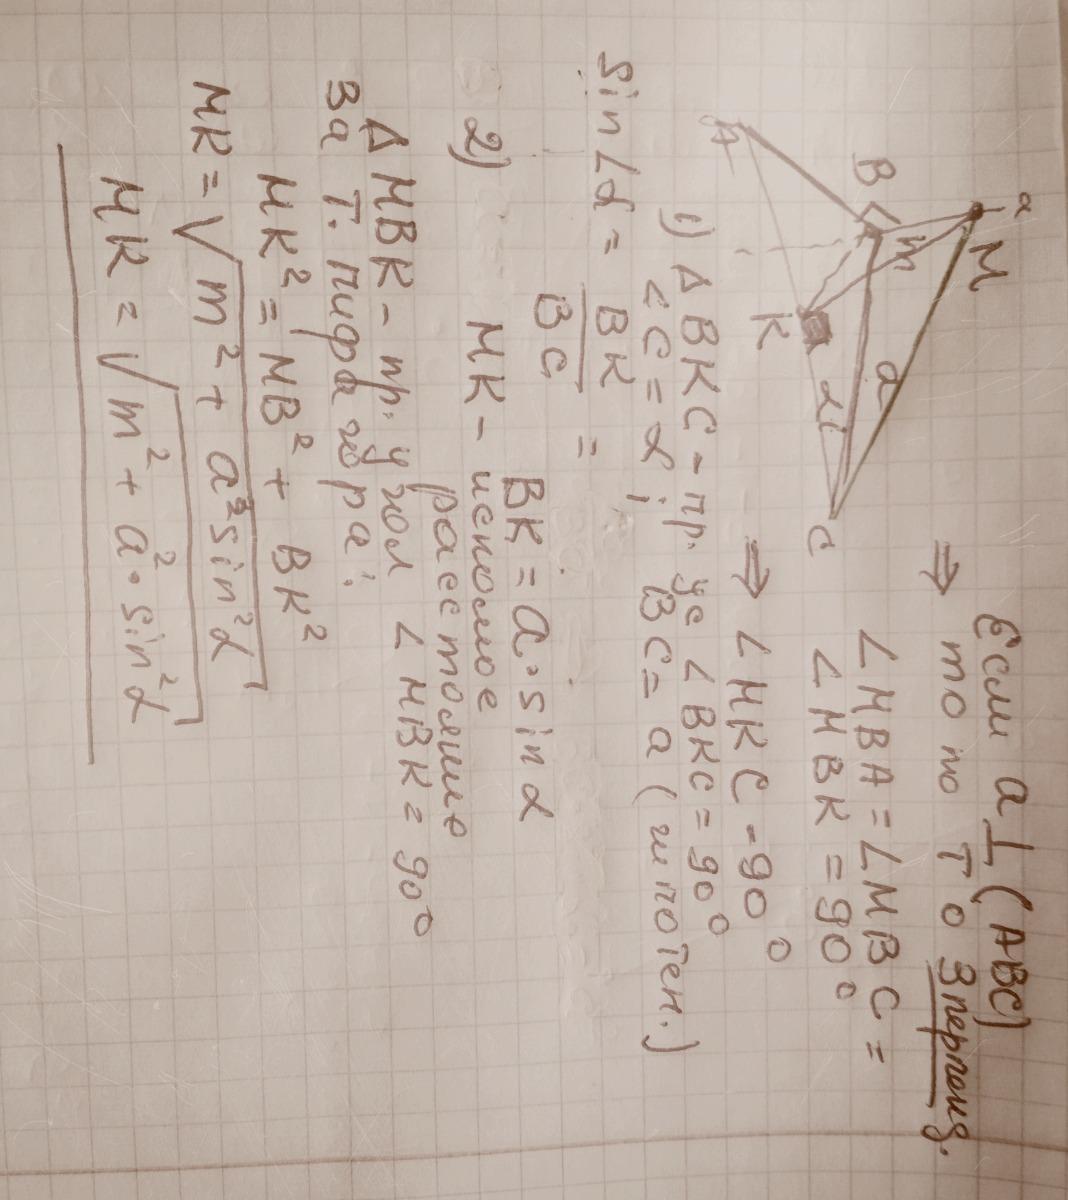 a
M
m
B
A
K
a
α
C
Если a ⊥ (ABC)
⇒ то по Т о 3 перпенд.
∠MBA = ∠MBC =
∠MBK = 90°
⇒ ∠MKC - 90°
1) Δ BKC - пр. ∠BKC = 90°
∠C = α; BC = a (гипотен.)
Sin∠α = BK/BC =
BK = a · sin α
2) MK - искомое
расстояние
Δ MBK - пр. угол ∠MBK = 90°
За Т. пифагора:
MK² = MB² + BK²
MK = √m² + a² sin² α
MK = √m² + a² · sin² α